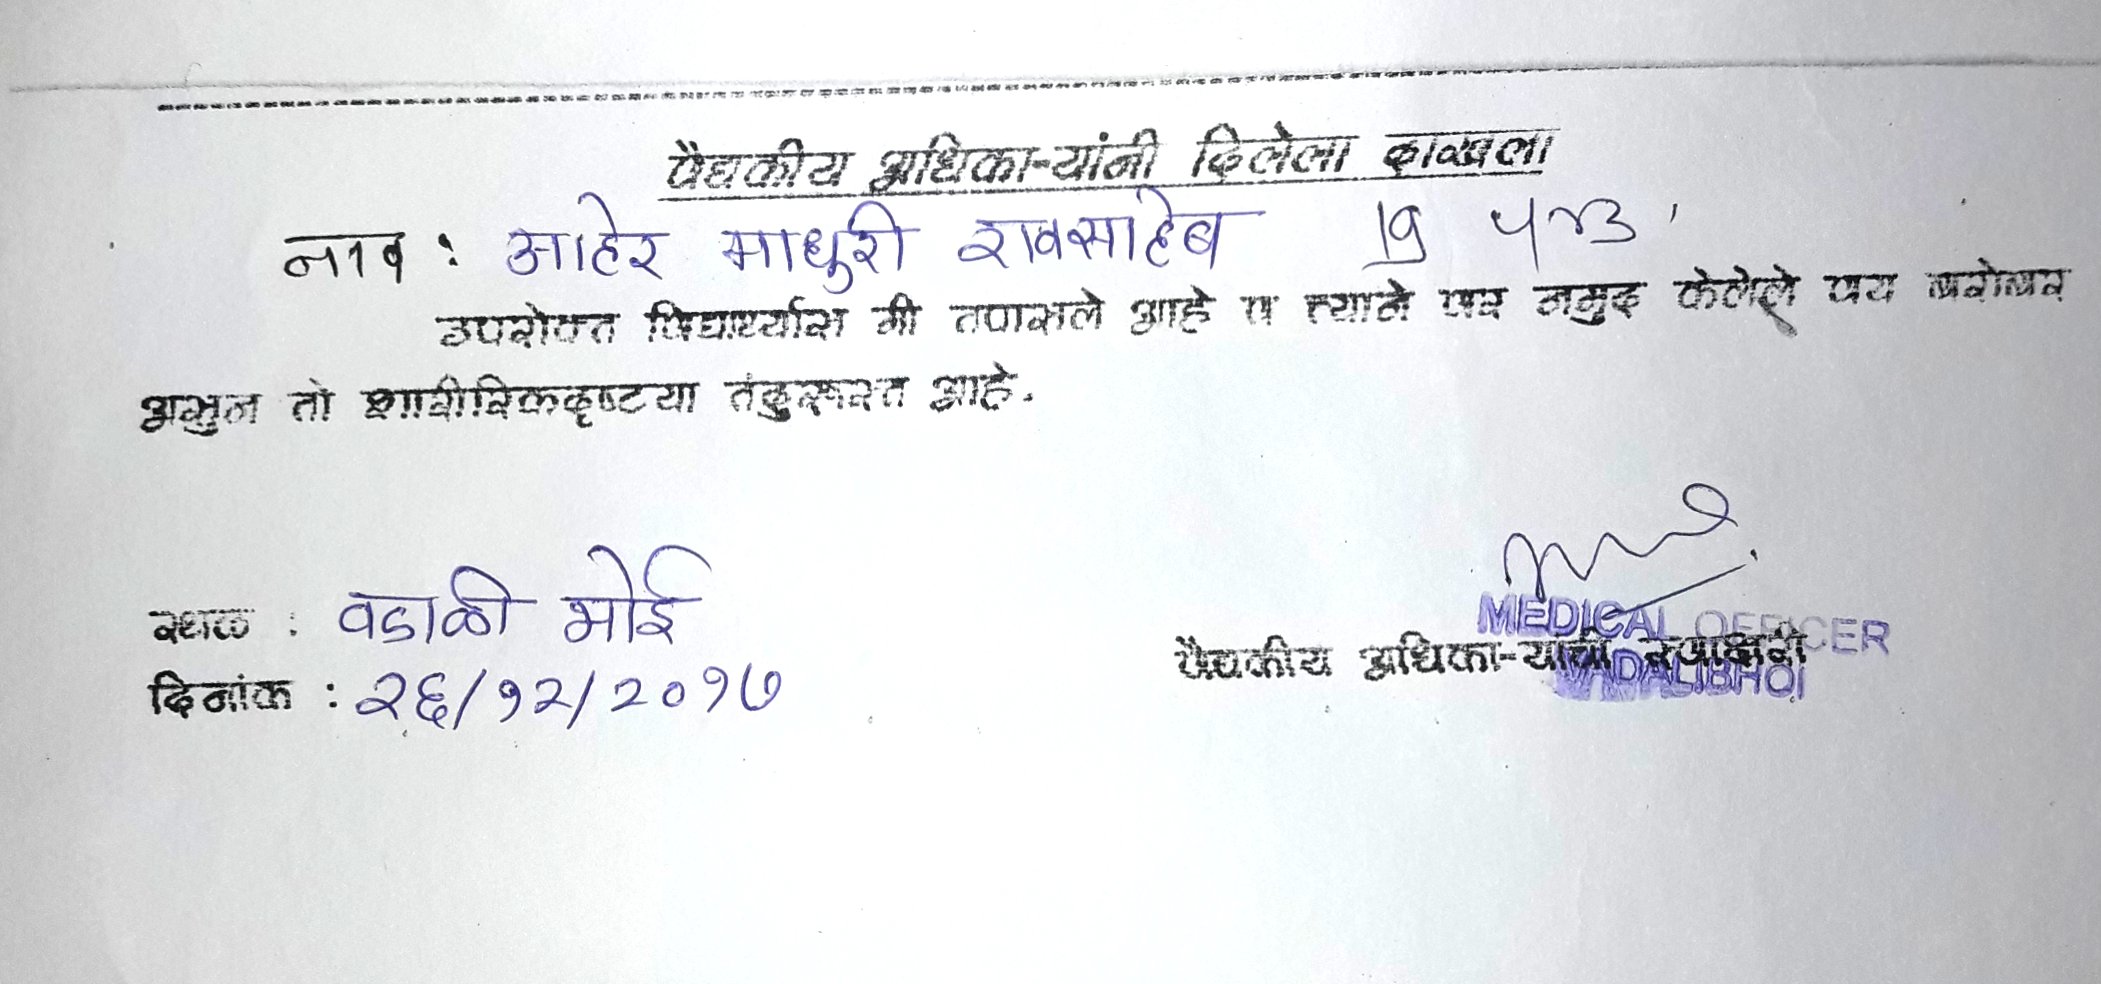 वैद्यकीय अधिका-यांनी दिलेला दाखला
नाव : आहेर माधुरी रावसाहेब 19 yrs
उपरोक्त विद्यार्थ्यास मी तपासले आहे व त्याने वर नमुद केलेले वय बरोबर
असुन तो शारीरिकदृष्टया तंदुरूस्त आहे.
स्थळ : वडाळी भोई
दिनांक : २६/१२/२०१७
MEDICAL OFFICER
वैद्यकीय अधिका-याची स्वाक्षरी
VADALIBHOI